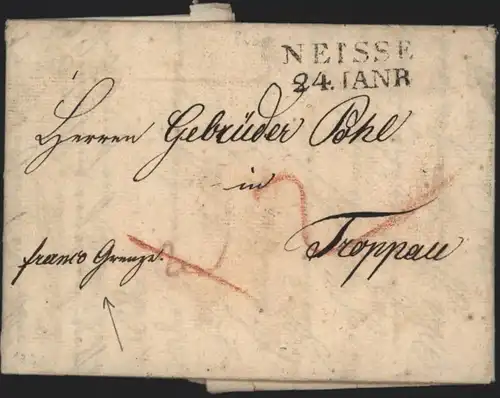 NEISSE
24. JANR
Herren Gebrüder Pohl
in
Troppau
franco Grenze.